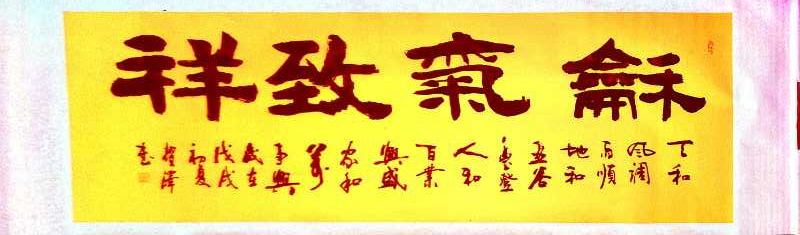 龢氣致祥
天和
风調
雨順
地和
五谷
豊登
人和
百業
興盛
家和
萬
事興
歲在
戊戌
初夏